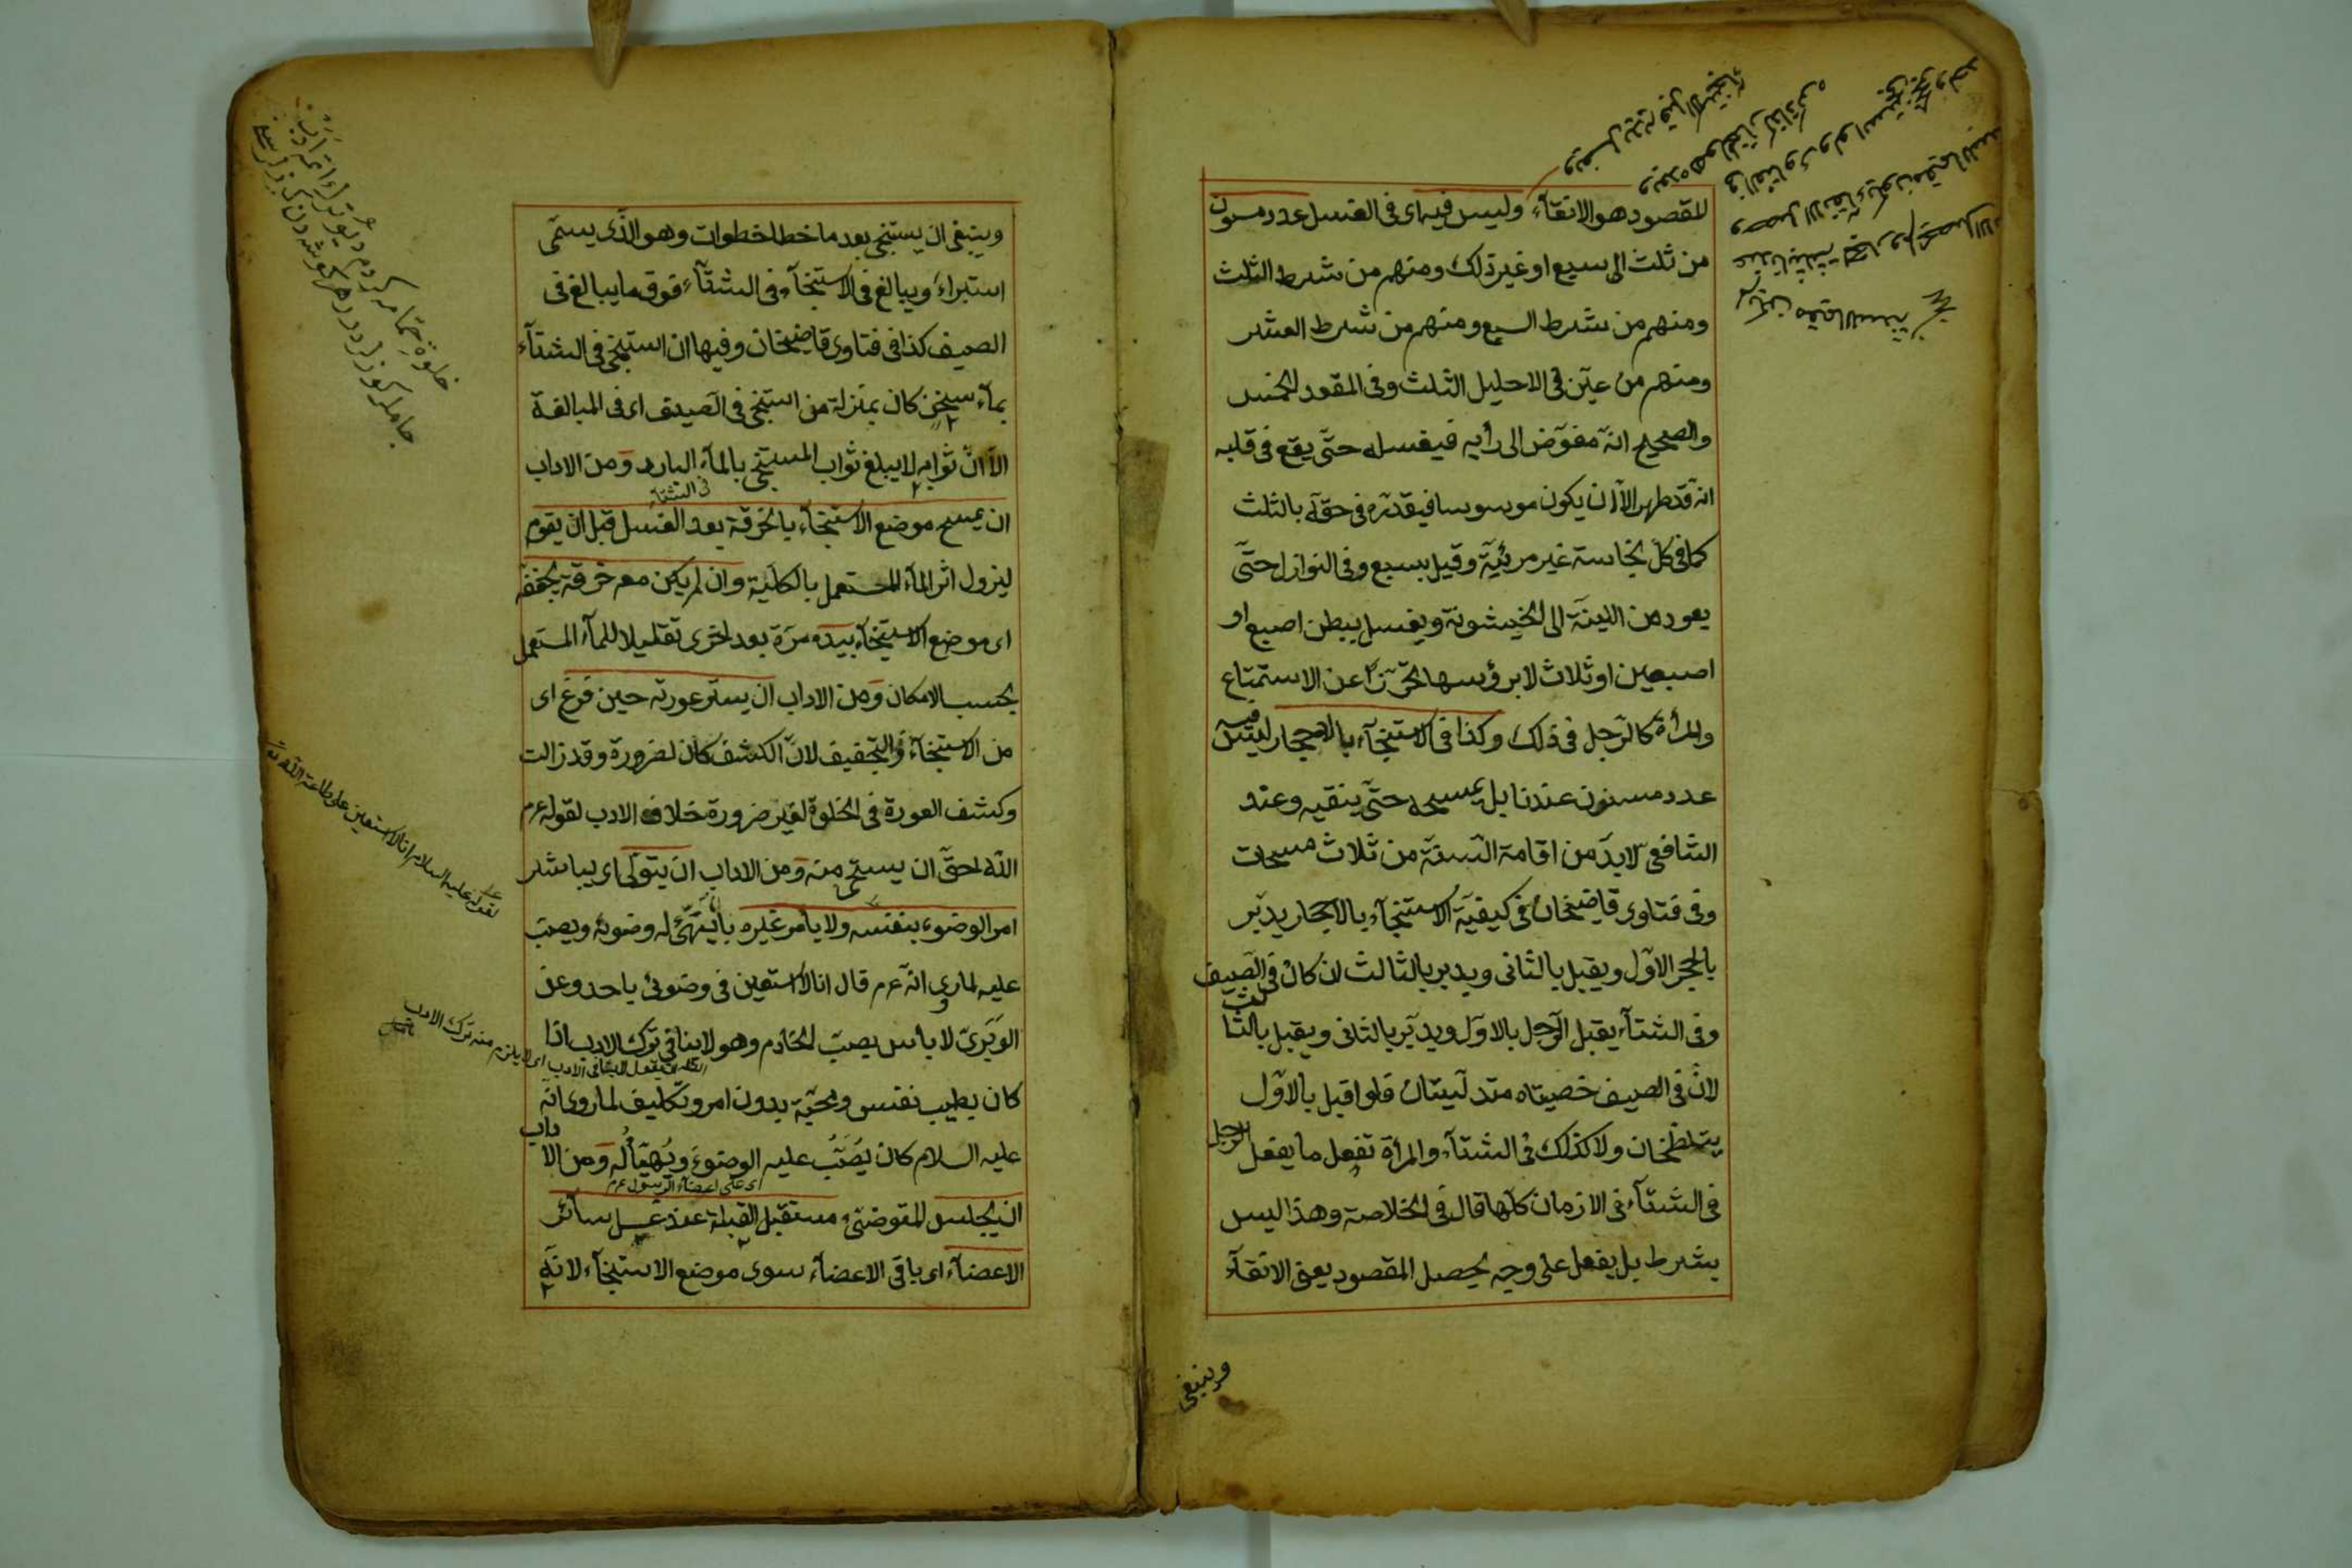 المقصود هو الانقآء وليس فيه اى فى الغسل عدد مسنون
من ثلث الى سبع او غير ذلك ومنهم من شرط الثلث
ومنهم من شرط السبع ومنهم من شرط العشر
ومنهم من عيّن فى الاحليل الثلث وفى المقعد الخمس
والصحيح انّه مفوّض الى رأيه فيغسله حتّى يقع فى قلبه
انّه قد طهر الاّ ان يكون موسوسا فيقدّر فى حقّه بالثلث
كما فى كلّ نجاسة غير مرئيّة وقيل بسبع وفى النوازل حتّى
يعود من اللينة الى الخيشونة ويغسل ببطن اصبع او
اصبعين او ثلاث لا برؤسها تحرّزا عن الاستمتاع
والمرأة كالرّجل فى ذلك وكذا فى الاستنجآء بالاحجار ليس فيه
عدد مسنون عندنا بل يمسحه حتّى ينقيه وعند
الشافعى لابدّ من اقامة السنّة من ثلاث مسحات
وفى فتاوى قاضيخان فى كيفيّة الاستنجآء بالاحجار يدبر
بالحجر الاوّل ويقبل بالثانى ويدبر بالثالث ان كان فى الصيف
وفى الشتآء يقبل الرّجل بالاوّل ويدبر بالثانى ويقبل بالثالث
لانّ فى الصيف خصيتاه متدلّيتان فلو اقبل بالاوّل
يتلطّخان ولا كذلك فى الشتآء والمرأة تفعل ما يفعل الرجل
فى الشتآء فى الازمان كلّها قال فى الخلاصة وهذا ليس
بشرط بل يفعل على وجه يحصل المقصود يعنى الانقآء
وينبغى
وينبغى ان يستنجى بعد ما خطا خطوات وهو الّذى يسمّى
استبراء ويبالغ فى الاستنجآء فى الشتآء فوق ما يبالغ فى
الصيف كذا فى فتاوى قاضيخان وفيها ان استنجى فى الشتآء
بمآء سخن كان بمنزلة من استنجى فى الصيف اى فى المبالغة
الاّ انّ ثوابه لا يبلغ ثواب المستنجى بالمآء البارد ومن الاداب
فى الشتآء
ان يمسح موضع الاستنجآء بالخرقة بعد الغسل قبل ان يقوم
ليزول اثر المآء المستعمل بالكليّة وان لم يكن معه خرقة يجفّفه
اى موضع الاستنجآء بيده مرّة بعد اخرى تقليلا للمآء المستعمل
بحسب الامكان ومن الاداب ان يستر عورته حين فرغ اى
من الاستنجآء والتجفيف لانّ الكشف كان لضرورة وقد زالت
وكشف العورة فى الخلوة لغير ضرورة خلاف الادب لقوله عم
الله احقّ ان يستحى منه ومن الاداب ان يتولّى اى يباشر
امر الوضوء بنفسه ولا يأمر غيره بان يهيّئ له وضوئه ويصبّ
عليه لما روى انّه عم قال انا لا استعين فى وضوئى باحد وعن
الوبرىّ لا بأس بصبّ الخادم وهو لا ينافى ترك الادب اذا
كان بطيب نفس ومحبّة بدون امر وتكليف لما روى انّه
عليه السلام كان يُصَبّ عليه الوضوء ويُهيّأ له ومن الاداب
اى على اعضآء الرّسول عم
ان يجلس المتوضّئ مستقبل القبلة عند غسل سائر
الاعضآء اى باقى الاعضآء سوى موضع الاستنجآء لانّه
لقوله عليه السلام انا لا استعين على طاعة الله تع
اى لا يلزم منه ترك الادب